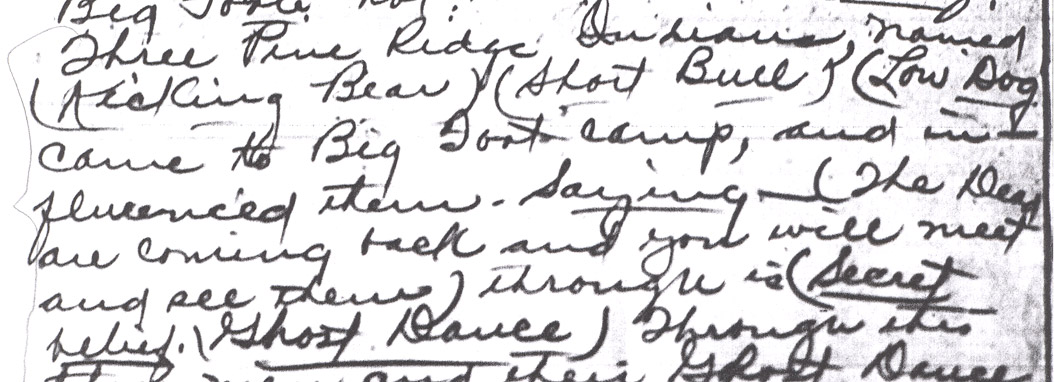 Big
Three Pine Ridge Indians, named
(Kicking Bear) (Short Bull) (Low Dog
came to Big Foot camp, and in-
fluenced them. Saying—(The Dead
are coming back and you will meet
and see them) through is (Secret
belief. (Ghost Dance) Through this
and their Ghost Dance